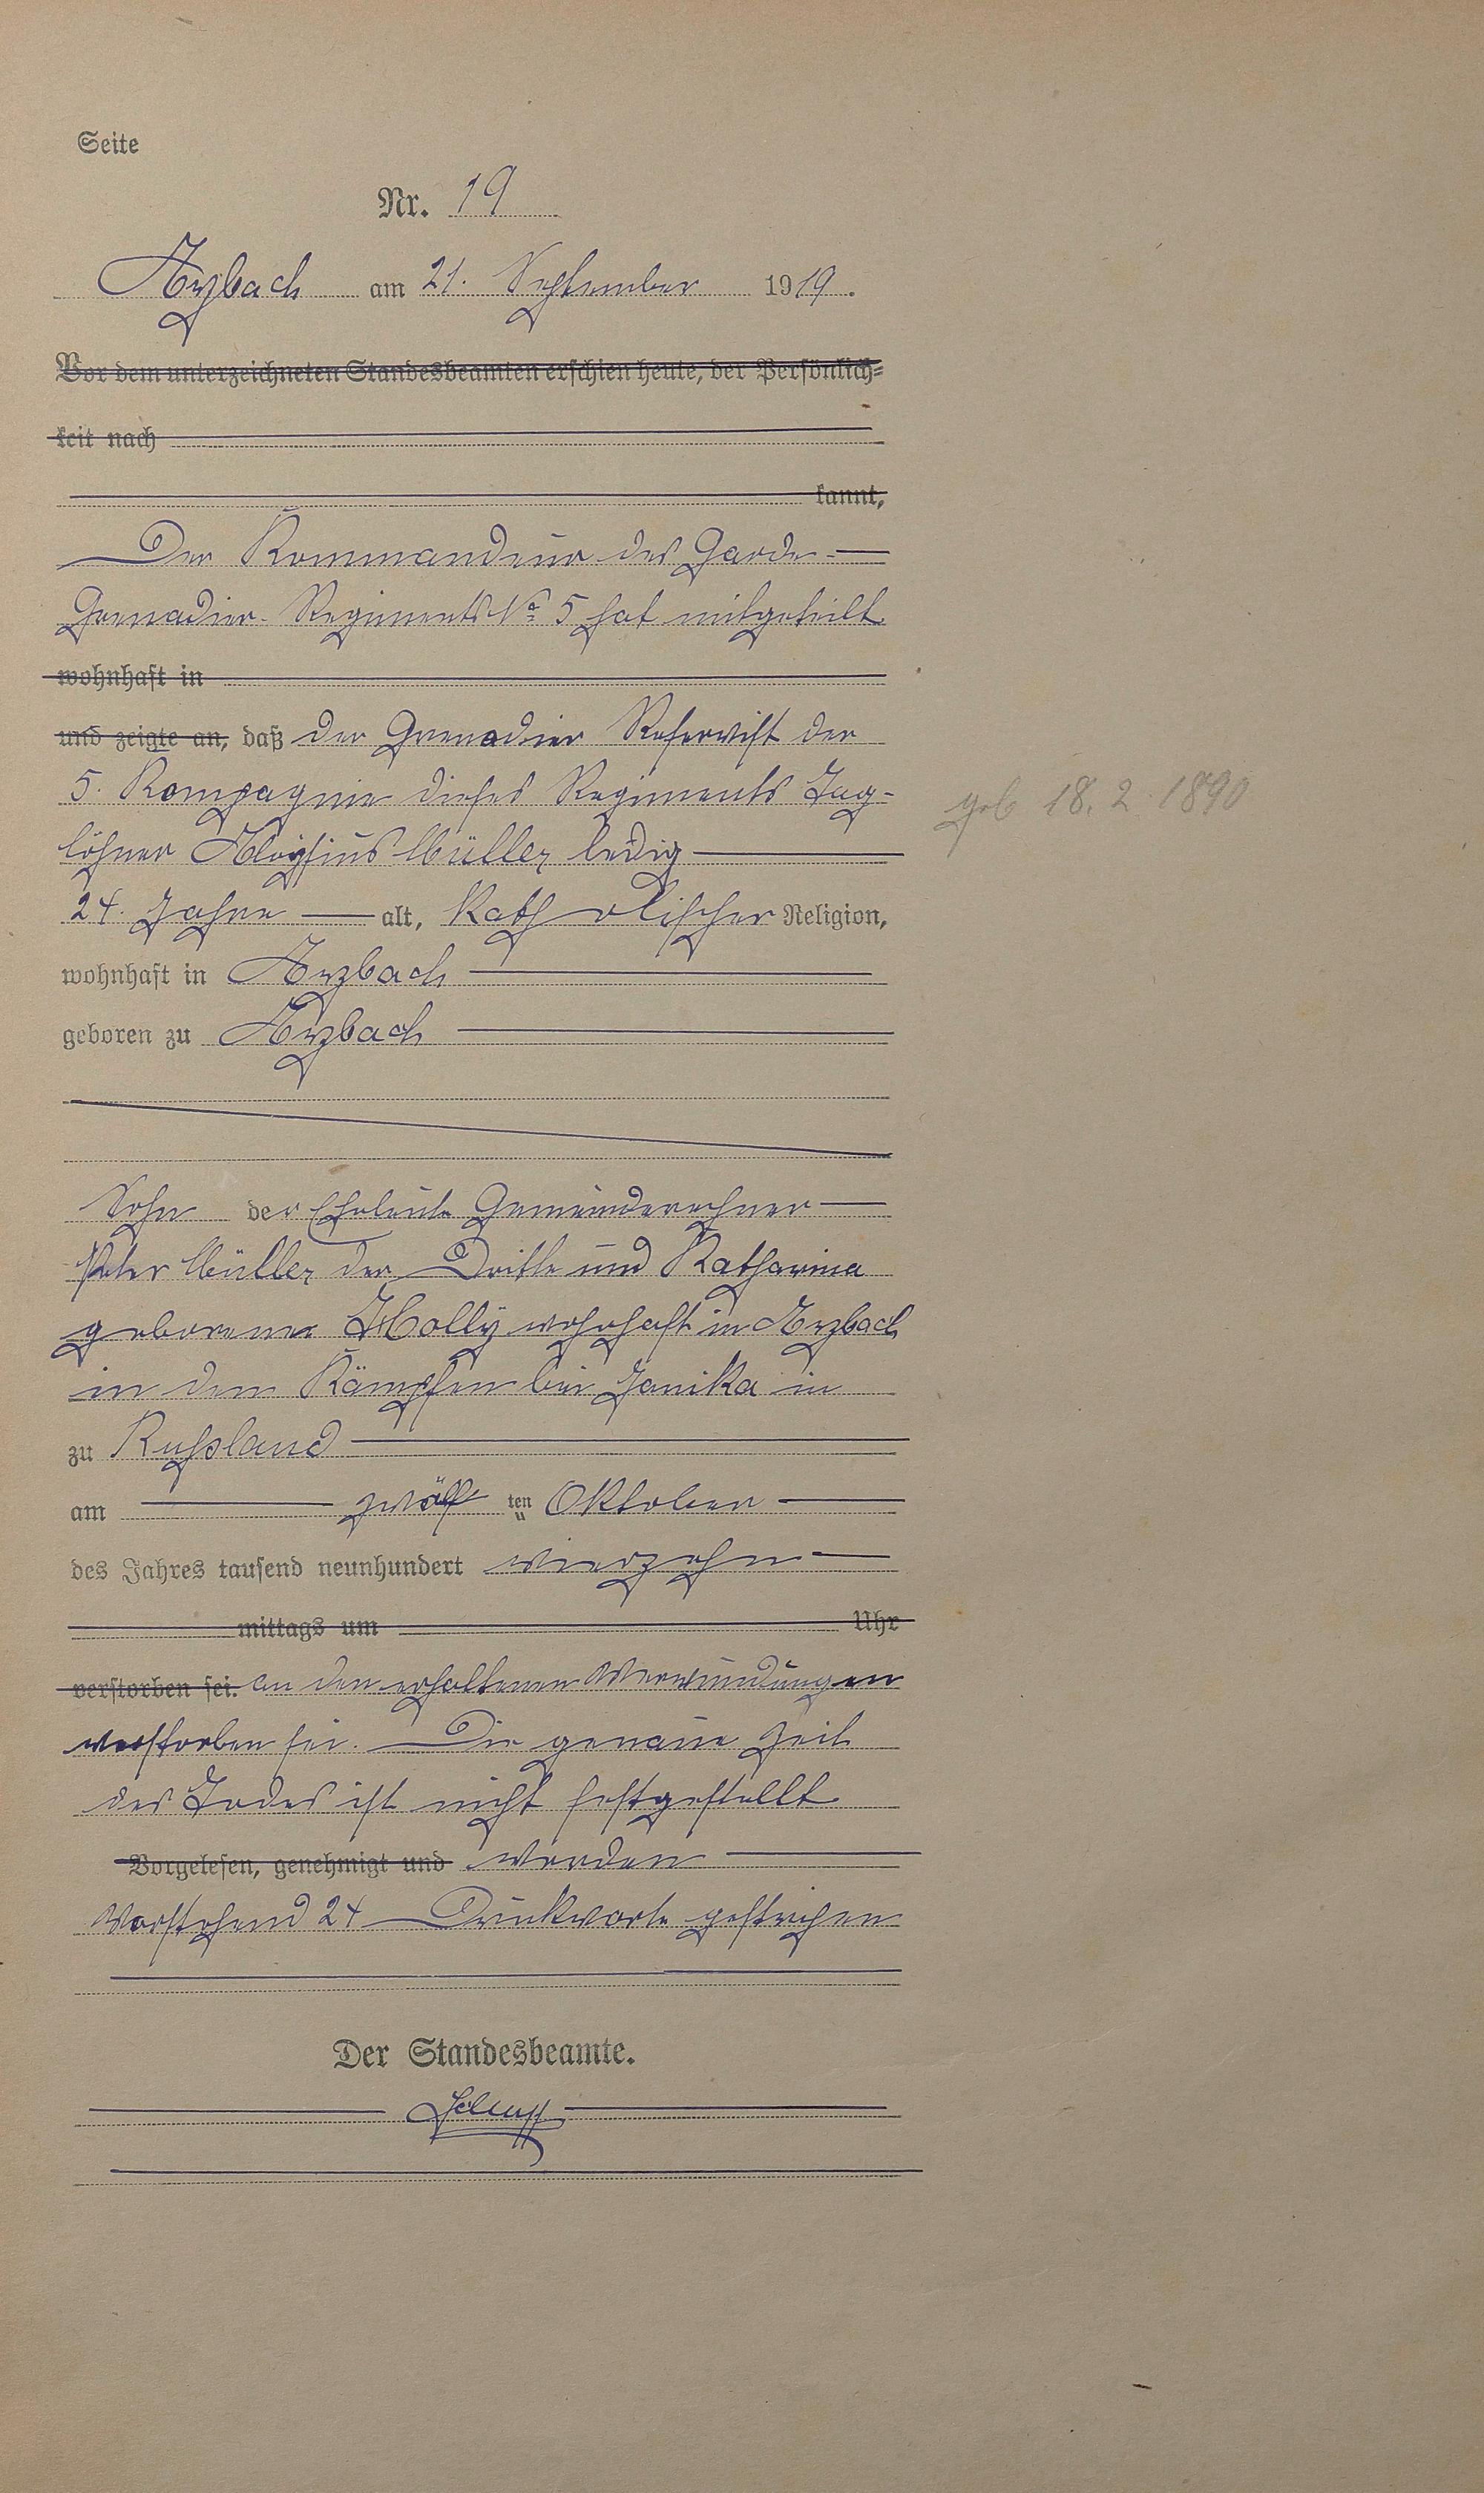 Seite
Nr. 19
Arzbach am 21. September 1919.
Vor dem unterzeichneten Standesbeamten erschien heute, der Persönlich=
keit nach
kannt,
Der Kommandeur des Garde-
Grenadier-Regiments No 5 hat mitgeteilt
wohnhaft in
und zeigte an, daß der Grenadier Reservist der
5. Kompagnie dieses Regiments Tag-
löhner Aloysius Müller ledig
24. Jahre alt, katholischer Religion,
wohnhaft in Arzbach
geboren zu Arzbach
geb 18. 2. 1890
Sohn der Eheleute Gemeinderechner
Peter Müller der Dritte und Katharina
geborenen Holly wohnhaft in Arzbach
in den Kämpfen bei Janika in
zu Rußland
am zwölf ten Oktober
des Jahres tausend neunhundert vierzehn
mittags um Uhr
verstorben sei. an den erhaltenen Verwundungen
verstorben sei. Die genaue Zeit
des Todes ist nicht festgestellt
Vorgelesen, genehmigt und worden
Vorstehend 24 Druckworte gestrichen
Der Standesbeamte.